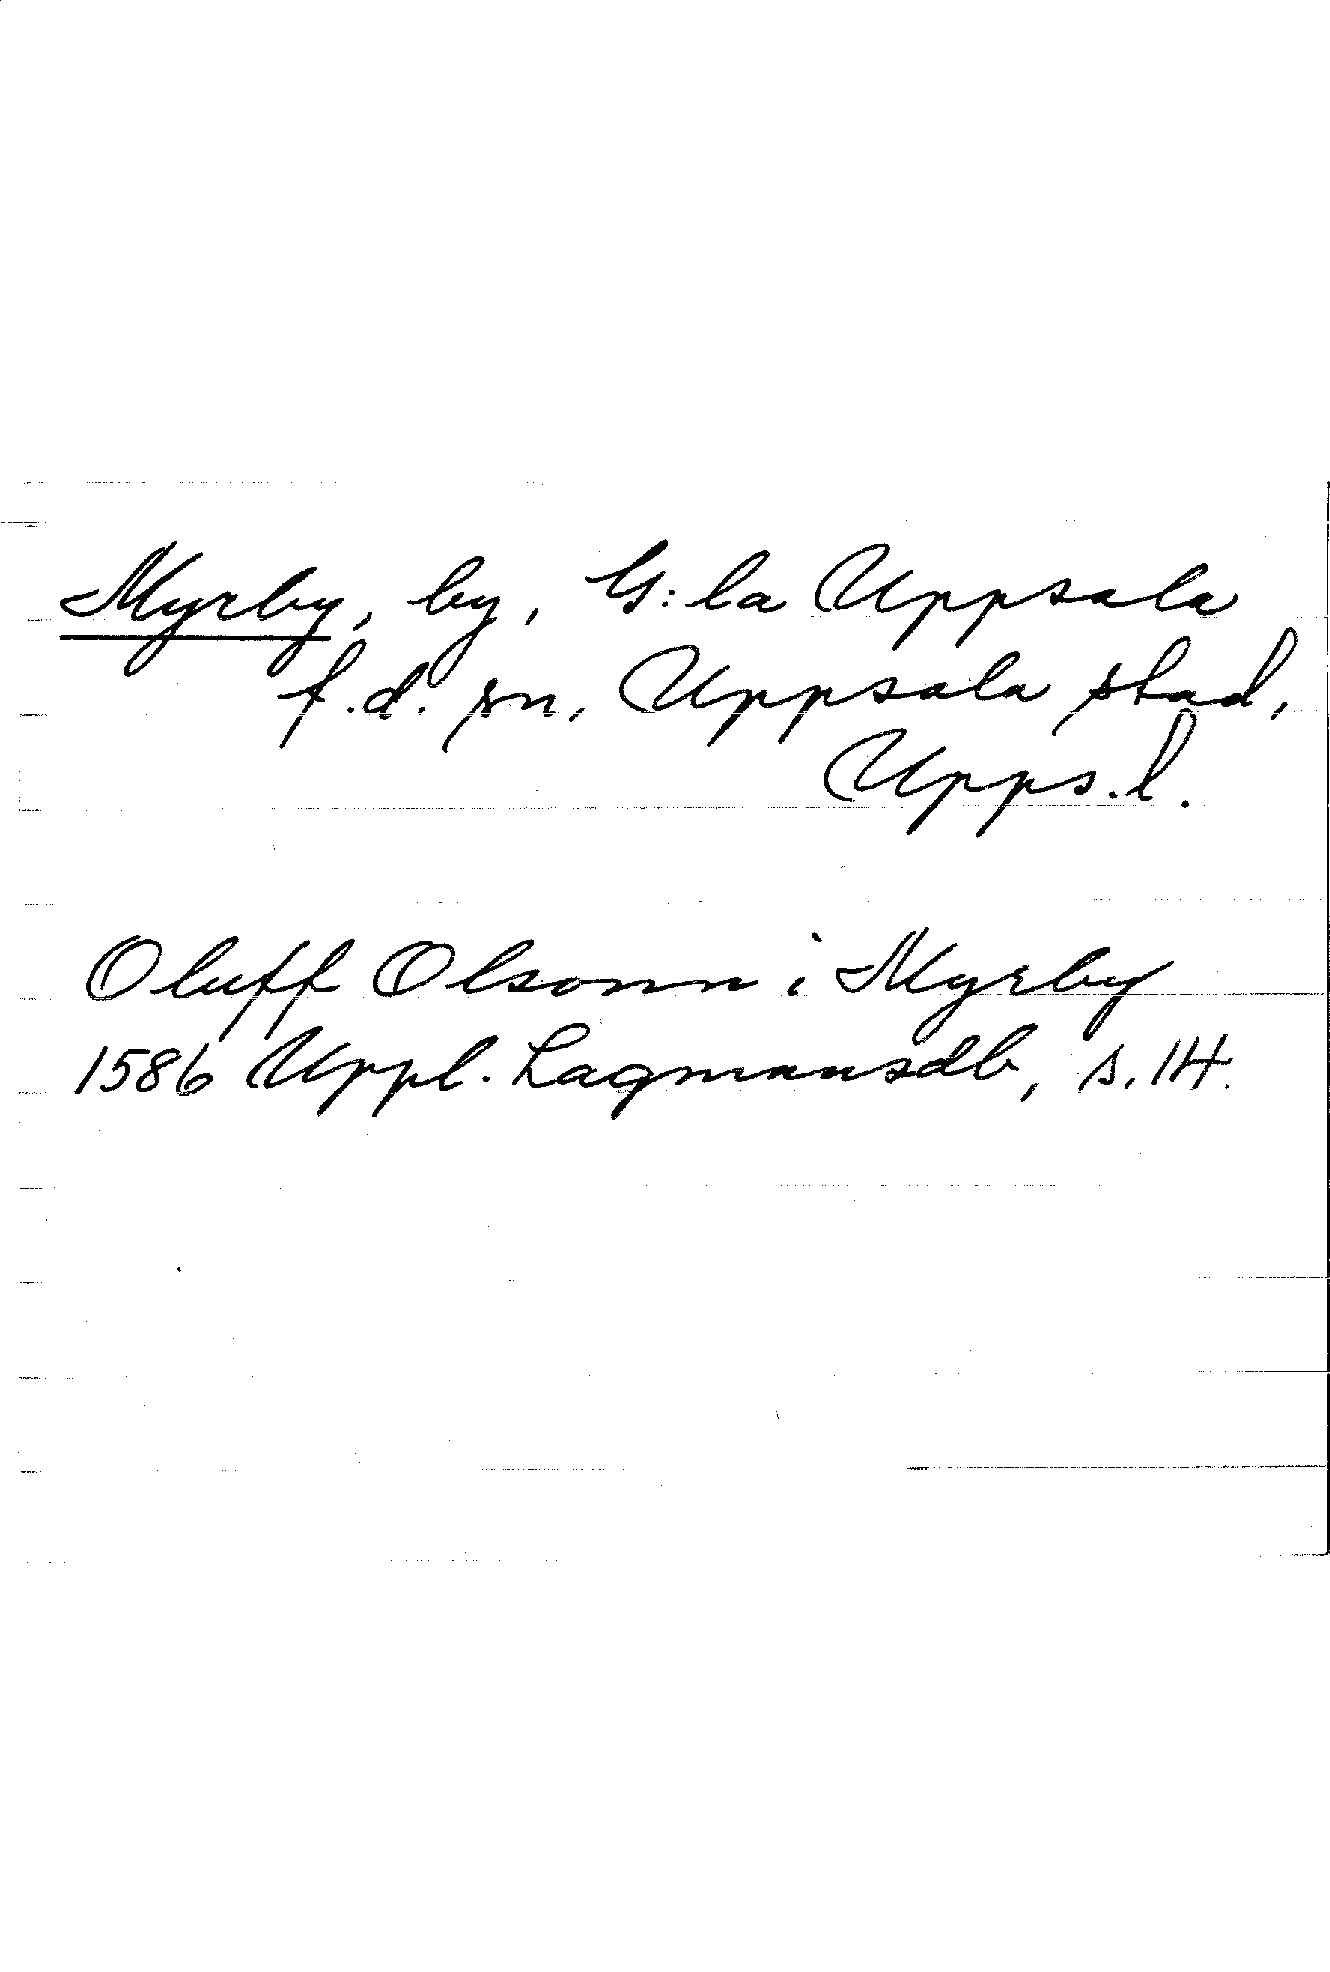 Myrby, by, G:la Uppsala
f.d. sn, Uppsala stad,
Upps.l.
Oluff Olsonn i Myrby
1586 Uppl. Lagmansdb, s. 14.